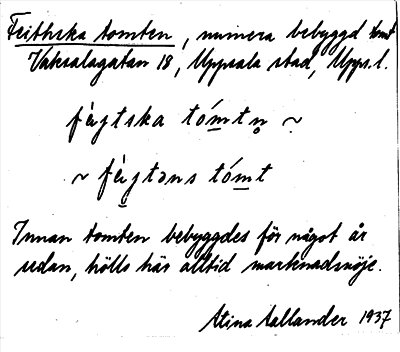 Feithska tomten, numera bebyggd tomt
Vaksalagatan 18, Uppsala stad, Upps. l.
fàjtska tómtn̥ ~
~ fàjtəns tómt
Innan tomten bebyggdes för något år
sedan, hölls här alltid marknadsnöje.
Stina Hallander 1937